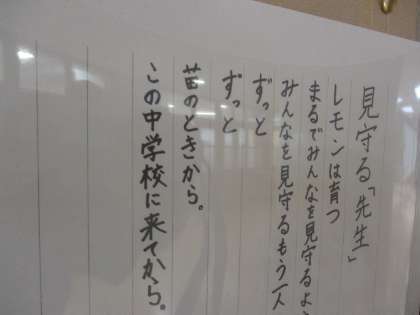 見守る「先生」
レモンは育つ
まるでみんなを見守るよ
みんなを見守るもう一人
ずっと
ずっと
苗のときから。
この中学校に来てから。